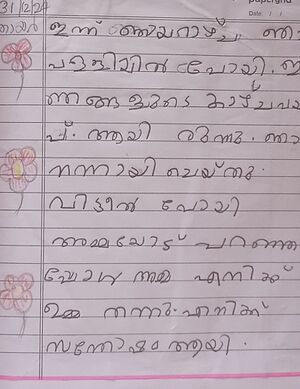 31/12/24
ഞായർ ഇന്ന് ഞായറാഴ്ച്ച ഞാ
പള്ളിയിൽ പോയി. ഇ
ഞങ്ങളുടെ കാഴ്ചവ
പ്. ആയി രുന്നു. ഞാ
നന്നായി ചെയ്തു.
വീട്ടിൽ പോയി
അമ്മയോട് പറഞ്ഞ
പ്പോൾ അമ്മ എനിക്ക്
ഉമ്മ തന്നു. എനിക്ക്
സന്തോഷം ആയി.